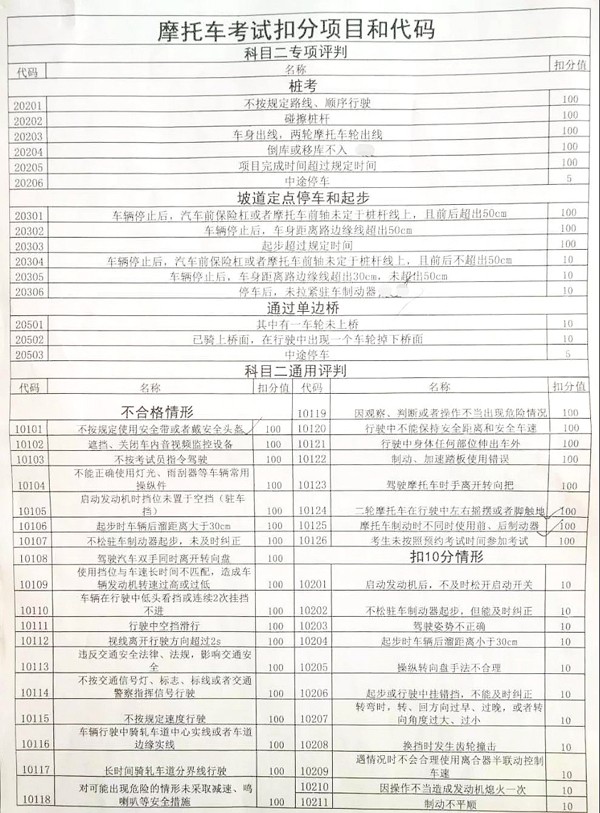 摩托车考试扣分项目和代码
科目二专项评判
代码 名称 扣分值
桩考
20201 不按规定路线、顺序行驶 100
20202 碰擦桩杆 100
20203 车身出线，两轮摩托车轮出线 100
20204 倒库或移库不入 100
20205 项目完成时间超过规定时间 100
20206 中途停车 5
坡道定点停车和起步
20301 车辆停止后，汽车前保险杠或者摩托车前轴未定于桩杆线上，且前后超出50cm 100
20302 车辆停止后，车身距离路边缘线超出50cm 100
20303 起步超过规定时间 100
20304 车辆停止后，汽车前保险杠或者摩托车前轴未定于桩杆线上，且前后不超出50cm 10
20305 车辆停止后，车身距离路边缘线超出30cm，未超出50cm 10
20306 停车后，未拉紧驻车制动器 10
通过单边桥
20501 其中有一车轮未上桥 10
20502 已骑上桥面，在行驶中出现一个车轮掉下桥面 10
20503 中途停车 5
科目二通用评判
代码 名称 扣分值 代码 名称 扣分值
不合格情形
10101 不按规定使用安全带或者戴安全头盔 100
10102 遮挡、关闭车内音视频监控设备 100
10103 不按考试员指令驾驶 100
10104 不能正确使用灯光、雨刮器等车辆常用
操纵件 100
10105 启动发动机时挡位未置于空挡（驻车
挡） 100
10106 起步时车辆后溜距离大于30cm 100
10107 不松驻车制动器起步，未及时纠正 100
10108 驾驶汽车双手同时离开转向盘 100
10109 使用挡位与车速长时间不匹配，造成车
辆发动机转速过高或过低 100
10110 车辆在行驶中低头看挡或连续2次挂挡
不进 100
10111 行驶中空挡滑行 100
10112 视线离开行驶方向超过2s 100
10113 违反交通安全法律、法规，影响交通安
全 100
10114 不按交通信号灯、标志、标线或者交通
警察指挥信号行驶 100
10115 不按规定速度行驶 100
10116 车辆行驶中骑轧车道中心实线或者车道
边缘实线 100
10117 长时间骑轧车道分界线行驶 100
10118 对可能出现危险的情形未采取减速、鸣
喇叭等安全措施 100
10119 因观察、判断或者操作不当出现危险情况 100
10120 行驶中不能保持安全距离和安全车速 100
10121 行驶中身体任何部位伸出车外 100
10122 制动、加速踏板使用错误 100
10123 驾驶摩托车时手离开转向把 100
10124 二轮摩托车在行驶中左右摇摆或者脚触地 100
10125 摩托车制动时不同时使用前、后制动器 100
10126 考生未按照预约考试时间参加考试 100
扣10分情形
10201 启动发动机后，不及时松开启动开关 10
10202 不松驻车制动器起步，但能及时纠正 10
10203 驾驶姿势不正确 10
10204 起步时车辆后溜距离小于30cm 10
10205 操纵转向盘手法不合理 10
10206 起步或行驶中挂错挡，不能及时纠正 10
10207 转弯时，转、回方向过早、过晚，或者转
向角度过大、过小 10
10208 换挡时发生齿轮撞击 10
10209 遇情况时不会合理使用离合器半联动控制
车速 10
10210 因操作不当造成发动机熄火一次 10
10211 制动不平顺 10